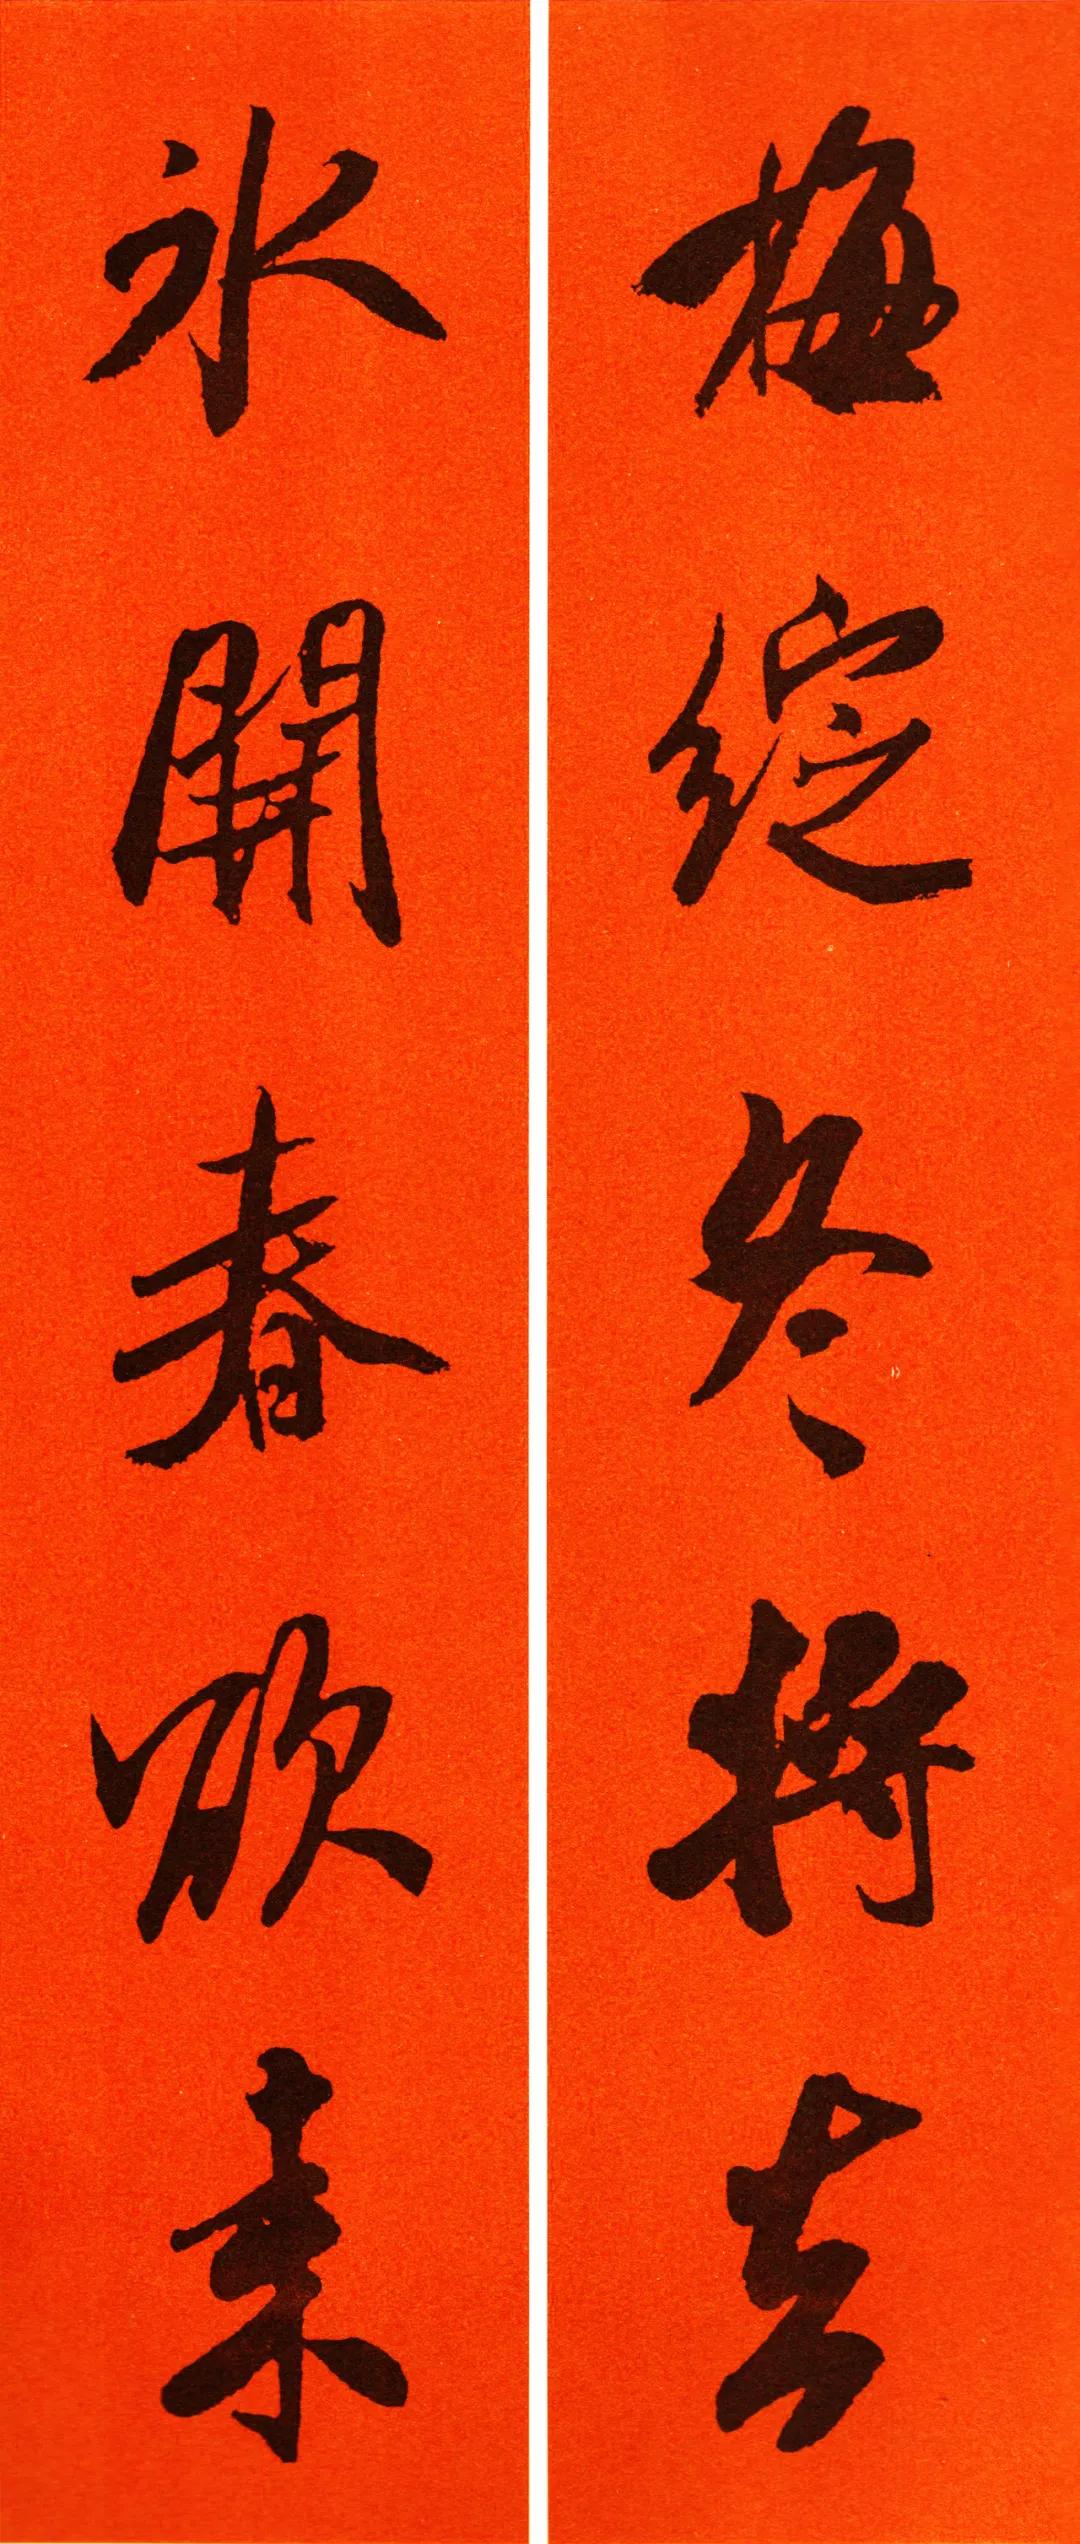 梅綻冬將去
冰開春欲來